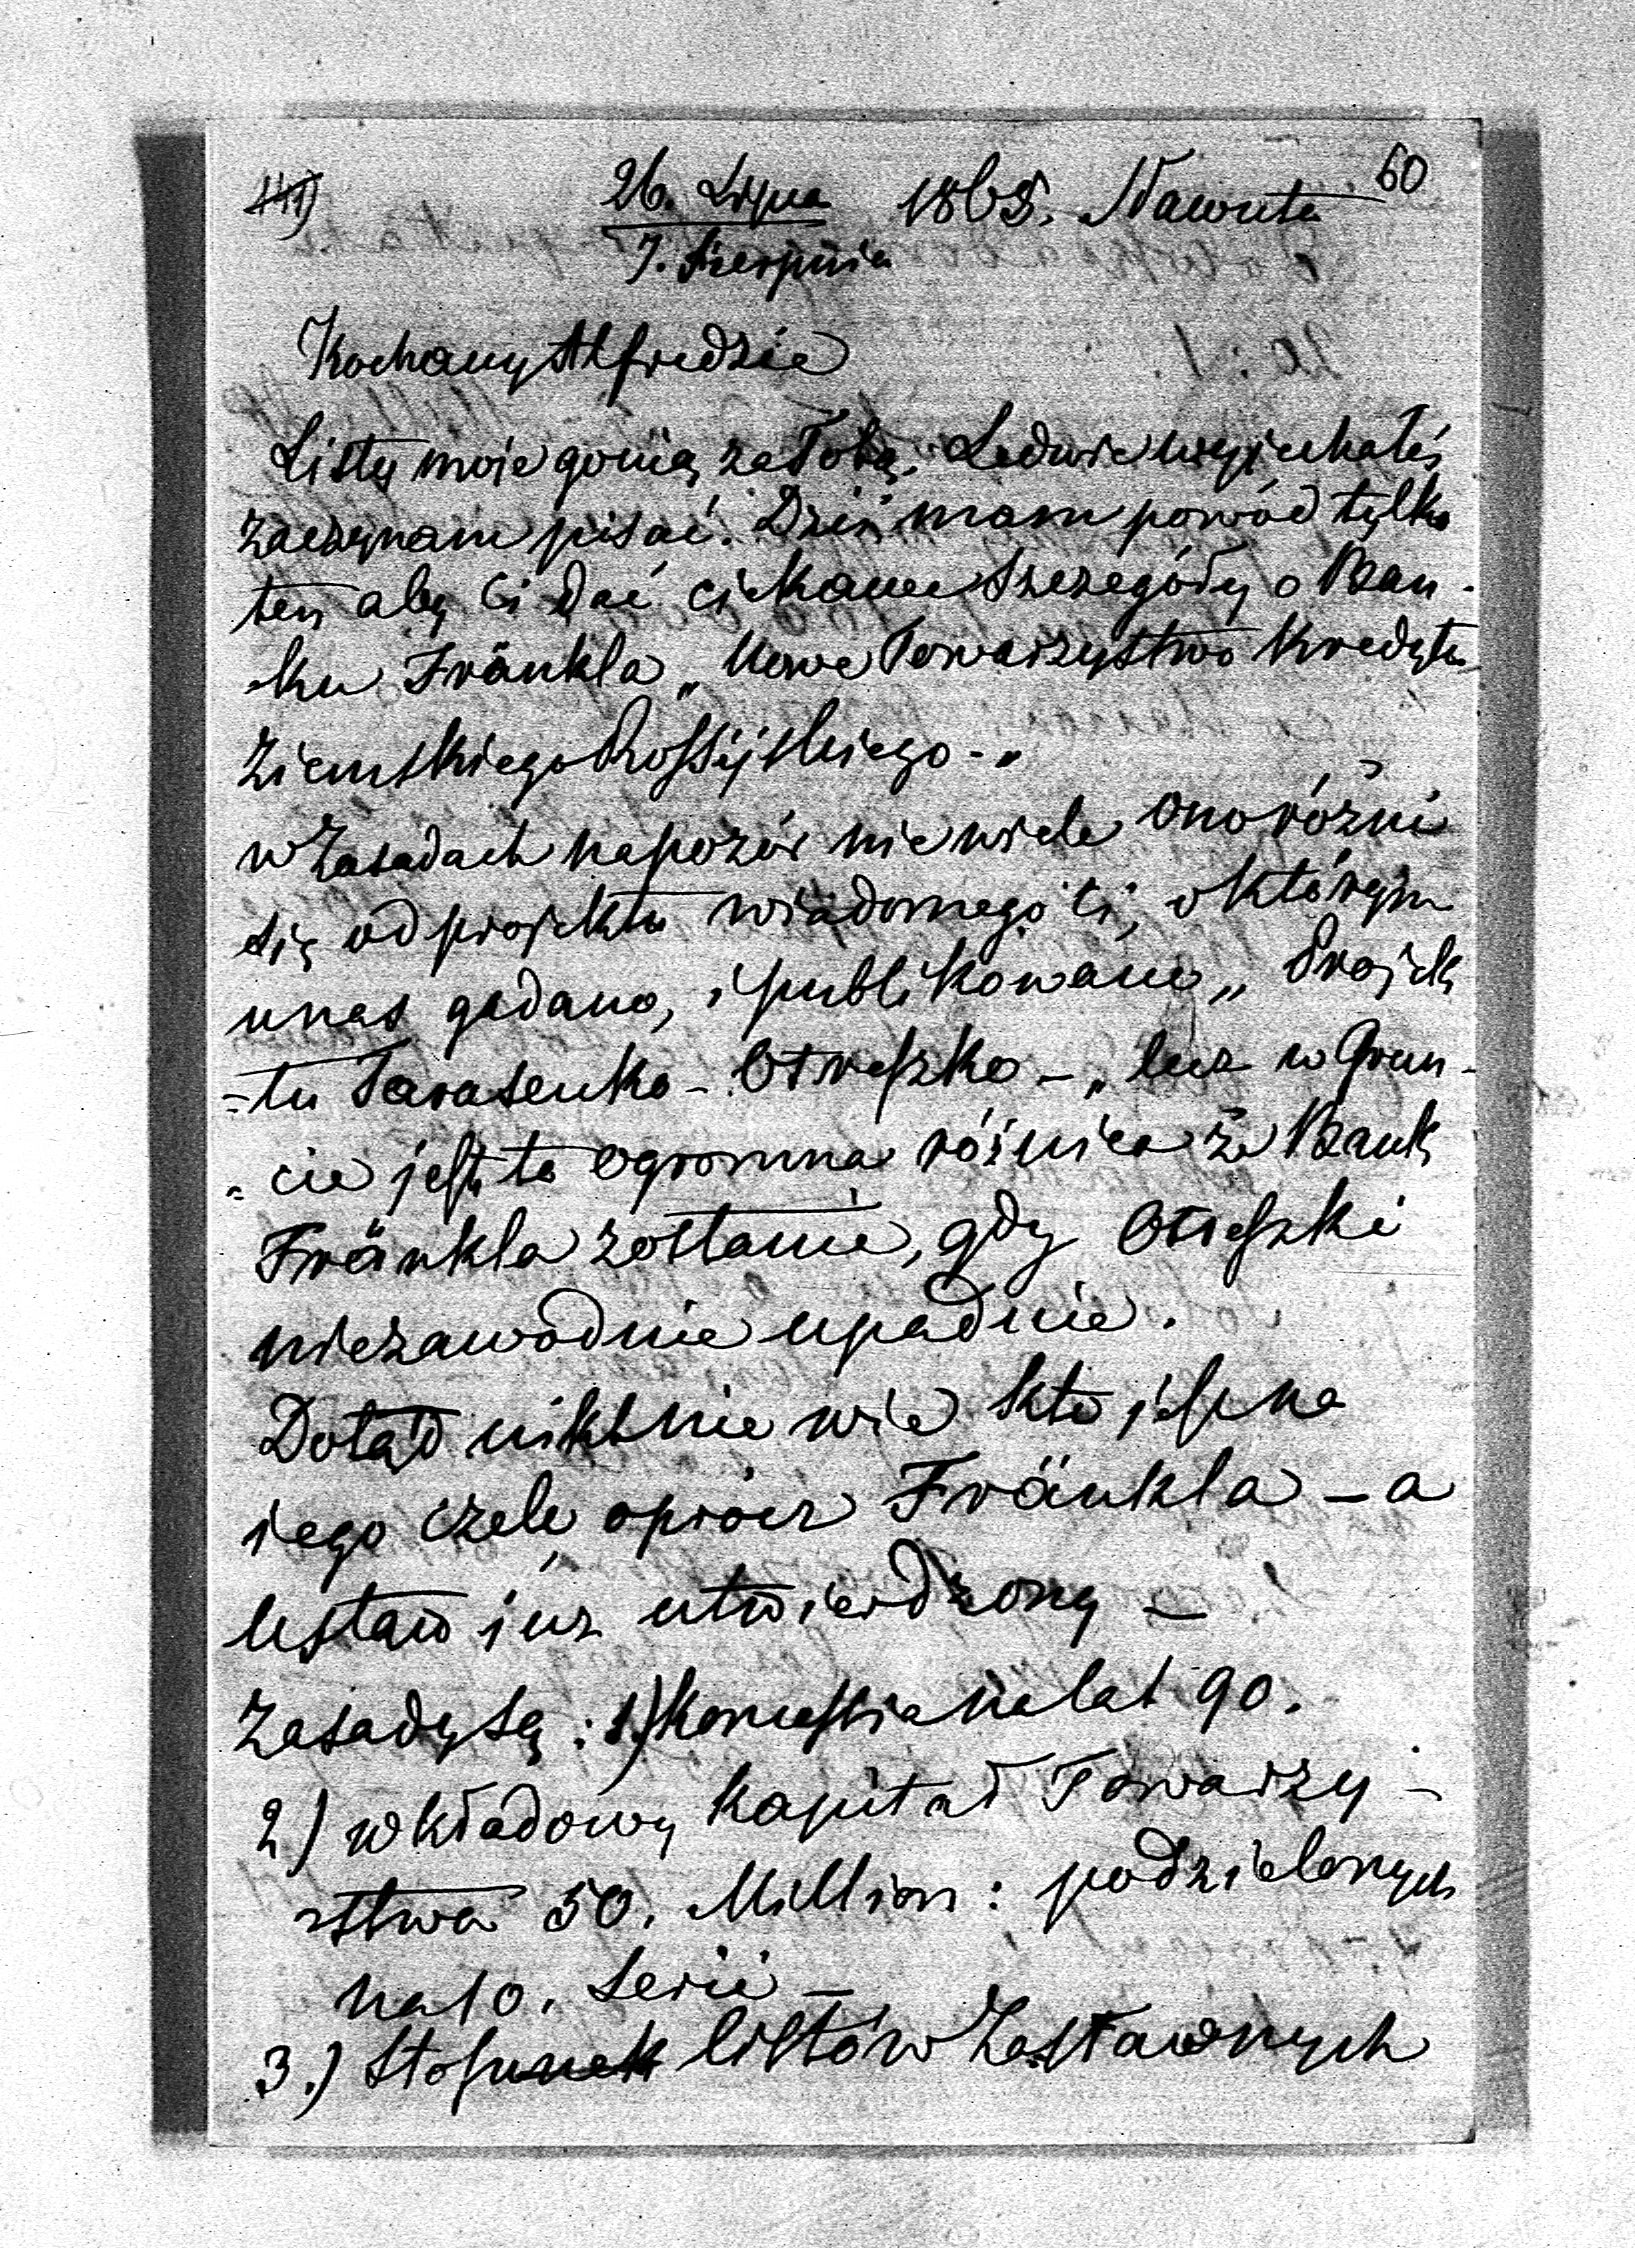 60
26. Lipca 1865. Nawuta
7. Sierpnia
Kochany Alfredzie
Listy moie gonią za Tobą. Ledwie wyjechałeś
zaczynam pisać. Dziś mam powód tylko
ten aby Ci dać ciekawe szczegóły o Ban-
-ku Fränkla „Nowe Towarzystwo Kredytu
Ziemskiego Rossijskiego-"
w Zasadach napozór nie wiele ono różni
się od projektu wiadomego Ci, o którym
u nas gadano, i publikowano „Projek
=tu Tarasenko-Otreszko-" lecz w Grun-
-cie jest ta ogromna różnica że Bank
Fränkla zostanie, gdy Otreszki
niezawodnie upadnie.
Dotąd nikt nie wie kto jest na
iego czele oprócz Fränkla – a
Ustaw iuz utwierdzony –
Zasady są: 1) Koncessia na lat 90.
2) wkładowy Kapitał Towarzy-
-stwa 50. Million: podzielonych
na 10. Serii –
3.) Stosunek listów Zastawnych